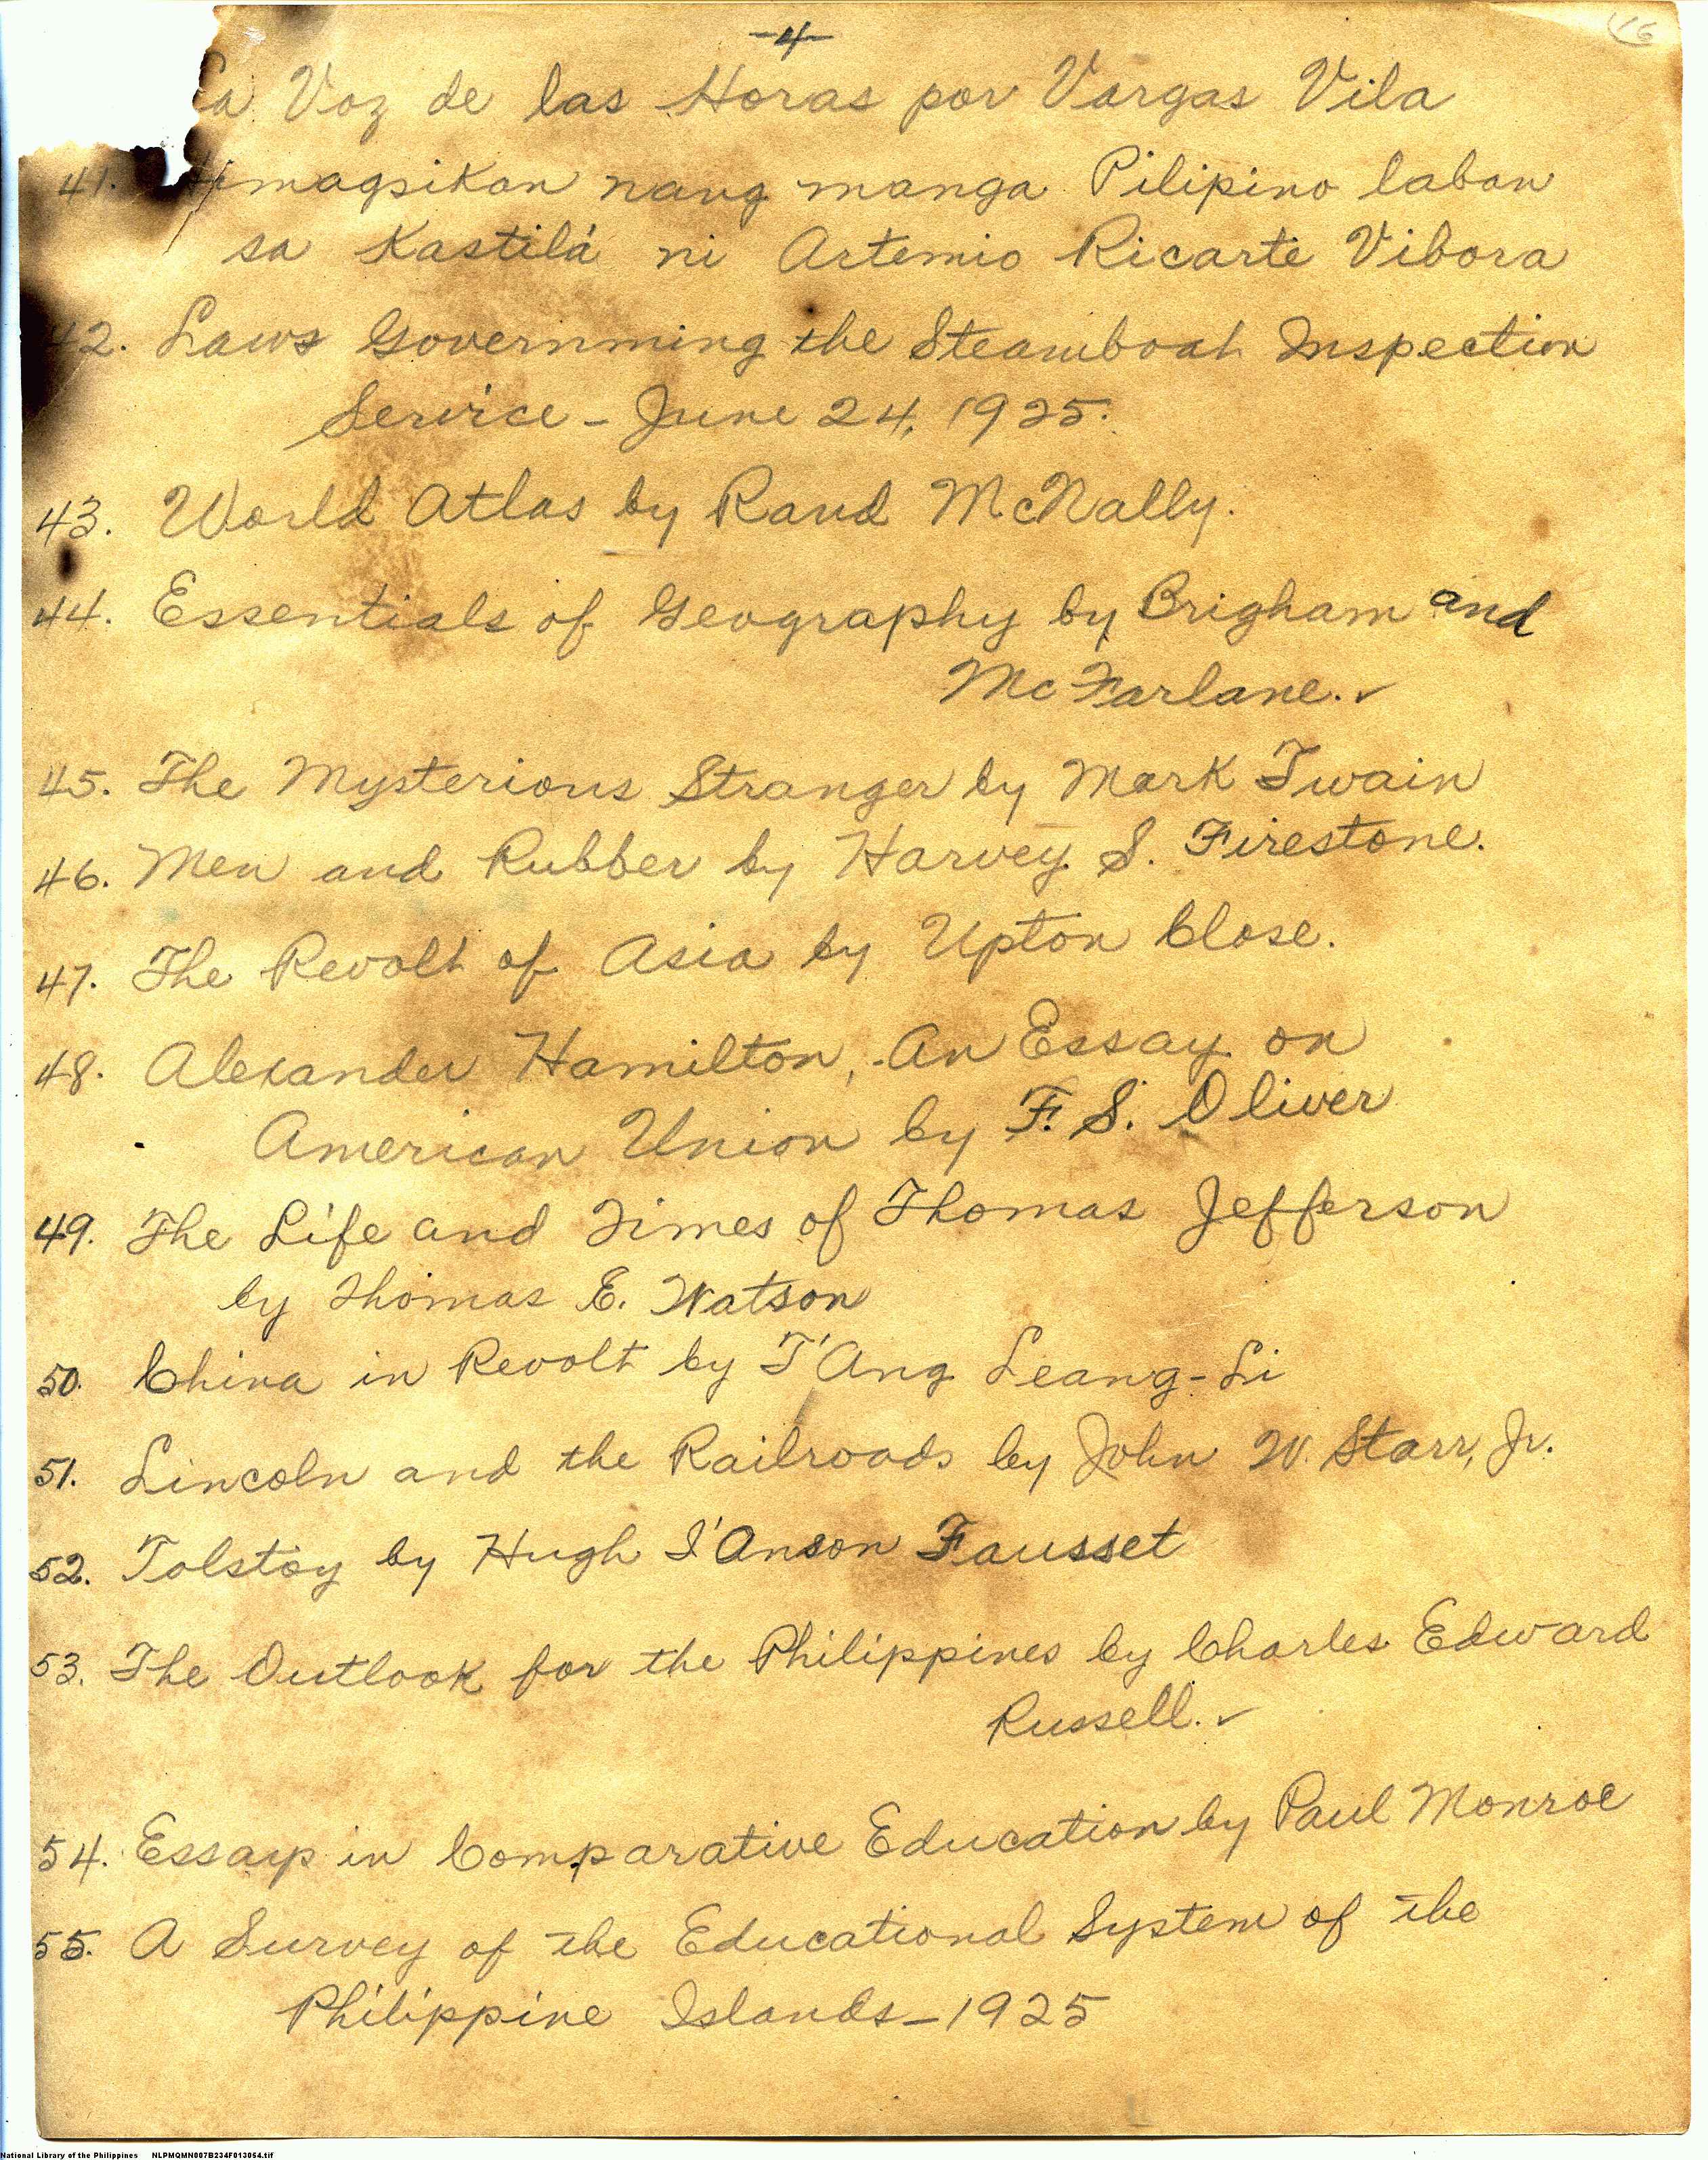 -4-
16
La Voz de las Horas por Vargas Vila
41. Himagsikan nang manga Pilipino laban
sa Kastilá ni Artemio Ricarte Vibora
42. Laws Governming the Steamboat Inspection
Service - June 24, 1925.
43. World Atlas by Rand McNally.
44. Essentials of Geography by Brigham and
McFarlane. ✓
45. The Mysterious Stranger by Mark Twain
46. Men and Rubber by Harvey S. Firestone.
47. The Revolt of Asia by Upton Close.
48. Alexander Hamilton, An Essay on
American Union by F. S. Oliver
49. The Life and Times of Thomas Jefferson
by Thomas E. Watson
50. China in Revolt by T'Ang Leang-Li
51. Lincoln and the Railroads by John W. Starr, Jr.
52. Tolstoy by Hugh I'Anson Fausset
53. The Outlook for the Philippines by Charles Edward
Russell. ✓
54. Essays in Comparative Education by Paul Monroe
55. A Survey of the Educational System of the
Philippine Islands - 1925
National Library of the Philippines NLPMQMN007B234F013054.tif